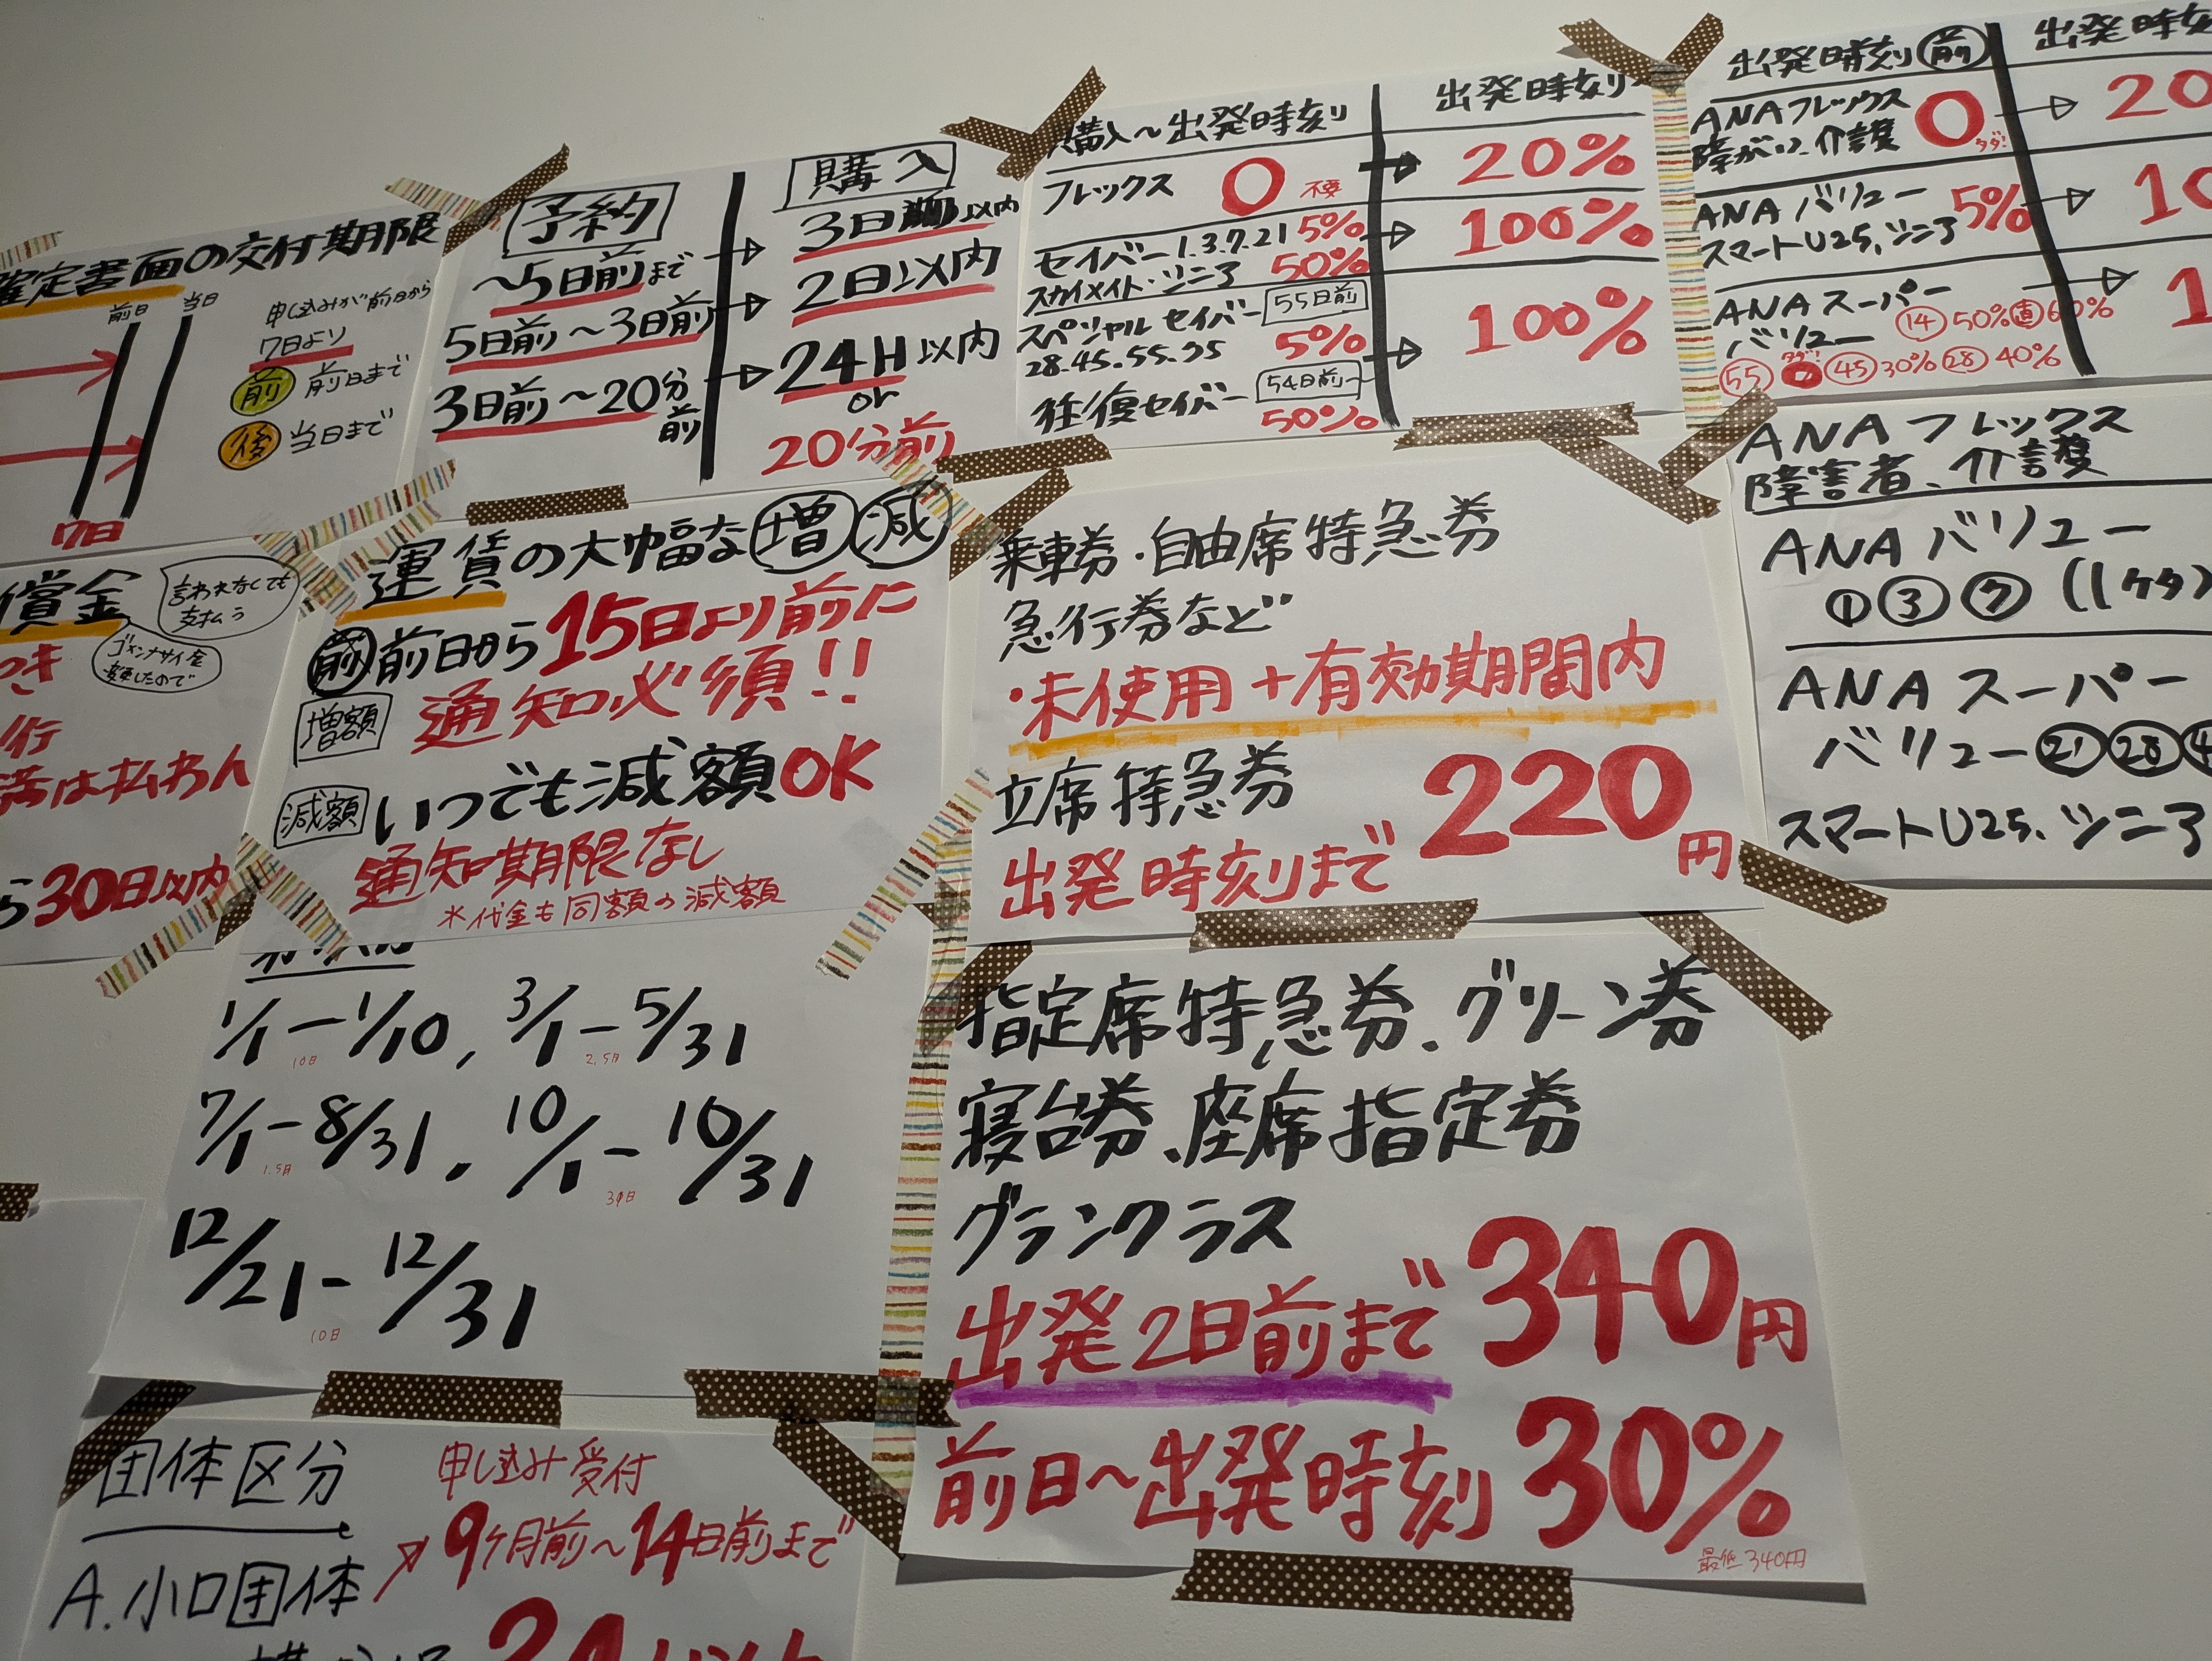 確定書面の交付期限
前日 当日
申し込みが前日から
7日より
前 前日まで
後 当日まで
7日
予約
購入
〜5日前まで → 3日以内
5日前〜3日前 → 2日以内
3日前〜20分前 → 24H以内
or
20分前
購入〜出発時刻 出発時刻
フレックス 0 不要 → 20%
セイバー1.3.7.21 5% → 100%
スカイメイト・シニア 50%
スペシャルセイバー 55日前
28.45.55.75 5% → 100%
往復セイバー 54日前〜
50%
出発時刻 前 出発時刻
ANAフレックス 0 タダ! → 20
障がい、介護
ANAバリュー 5% → 10
スマートU25、シニア
ANAスーパー → 1
バリュー 14 50% 直 60%
55 タダ! 0 45 30% 28 40%
償金 言われなくても
支払う
ゴメンナサイ金
変更したので
つき
行
満は払わん
ら30日以内
運賃の大幅な増減
前 前日から15日より前に
増額 通知必須!!
減額 いつでも減額OK
通知期限なし
*代金も同額の減額
乗車券・自由席特急券
急行券など
・未使用+有効期間内
立席特急券 220円
出発時刻まで
ANAフレックス
障害者、介護
ANAバリュー
①③⑦(1ケタ)
ANAスーパー
バリュー㉑㉘
スマートU25、シニア
1/1-1/10, 3/1-5/31
10日 2.5日
7/1-8/31. 10/1-10/31
1.5日 30日
12/21-12/31
10日
指定席特急券、グリーン券
寝台券、座席指定券
グランクラス
出発2日前まで 340円
前日〜出発時刻 30%
最低340円
団体区分 申し込み受付
A.小口団体 9ヶ月前〜14日前まで